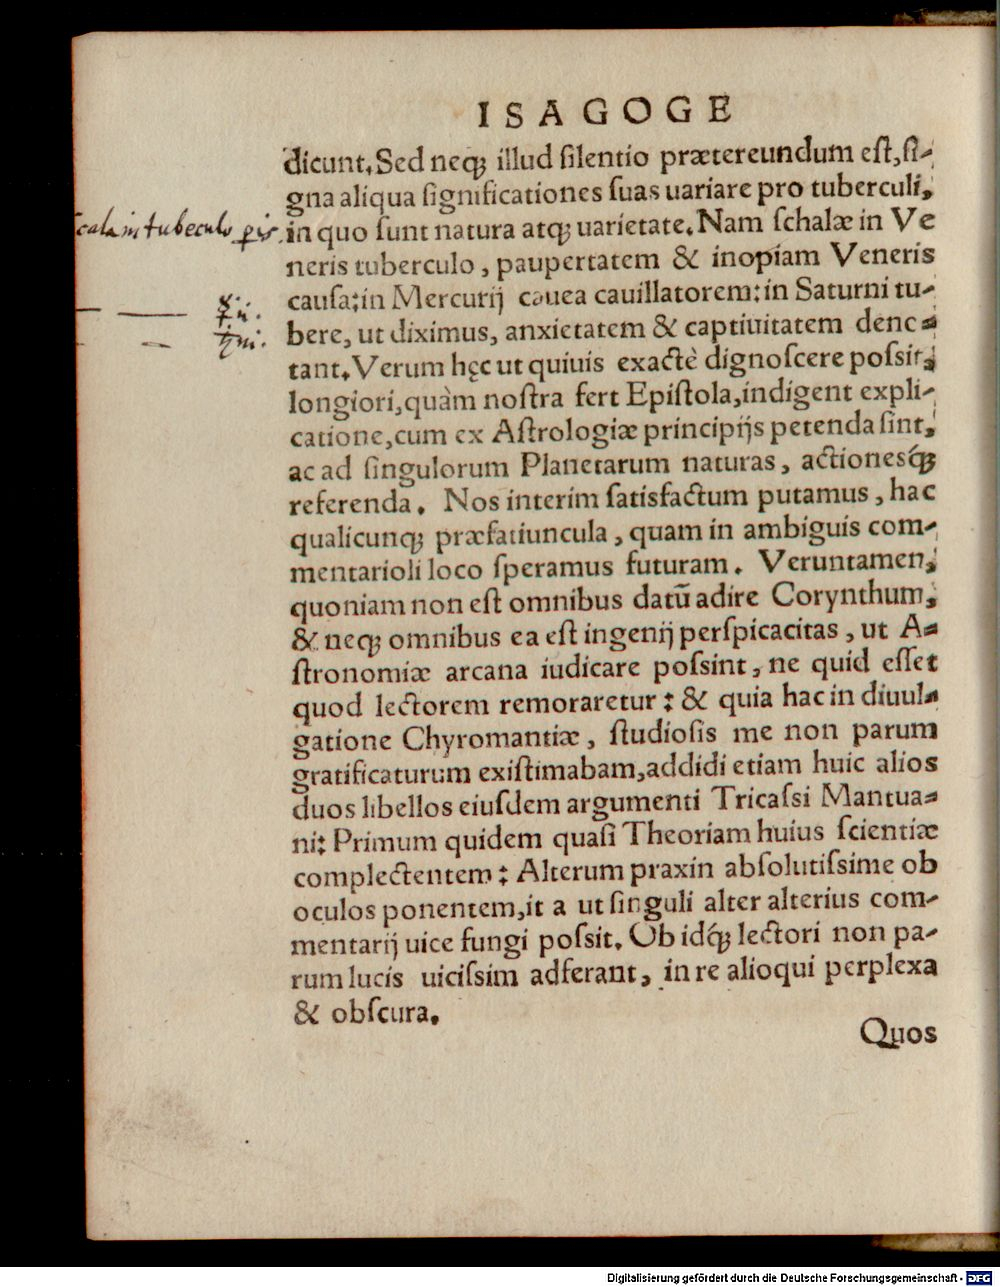 ISAGOGE
dicunt. Sed neqꝫ illud ſilentio prætereundum eſt, ſi-
gna aliqua ſignificationes ſuas uariare pro tuberculi,
in quo ſunt natura atqꝫ uarietate. Nam ſchalæ in Ve
neris tuberculo, paupertatem & inopiam Veneris
cauſa: in Mercurij cauea cauillatorem: in Saturni tu-
bere, ut diximus, anxietatem & captiuitatem deno-
tant. Verum hęc ut quiuis exactè dignoſcere poſsit,
longiori, quàm noſtra fert Epiſtola, indigent expli-
catione, cum ex Aſtrologiæ principijs petenda ſint,
ac ad ſingulorum Planetarum naturas, actionesqꝫ́
referenda. Nos interim ſatisfactum putamus, hac
qualicunqꝫ præfatiuncula, quam in ambiguis com-
mentarioli loco ſperamus futuram. Veruntamen,
quoniam non eſt omnibus datū adire Corynthum,
& neqꝫ omnibus ea eſt ingenij perſpicacitas, ut A-
ſtronomiæ arcana iudicare poſsint, ne quid eſſet
quod lectorem remoraretur: & quia hac in diuul-
gatione Chyromantiæ, ſtudioſis me non parum
gratificaturum exiſtimabam, addidi etiam huic alios
duos libellos eiuſdem argumenti Tricaſsi Mantua-
ni: Primum quidem quaſi Theoriam huius ſcientiæ
complectentem: Alterum praxin abſolutiſsime ob
oculos ponentem, it a ut ſinguli alter alterius com-
mentarij uice fungi poſsit. Ob idqꝫ́ lectori non pa-
rum lucis uiciſsim adferant, in re alioqui perplexa
& obſcura.
Quos
calam tubeculo
Digitalisierung gefördert durch die Deutsche Forschungsgemeinschaft - DFG